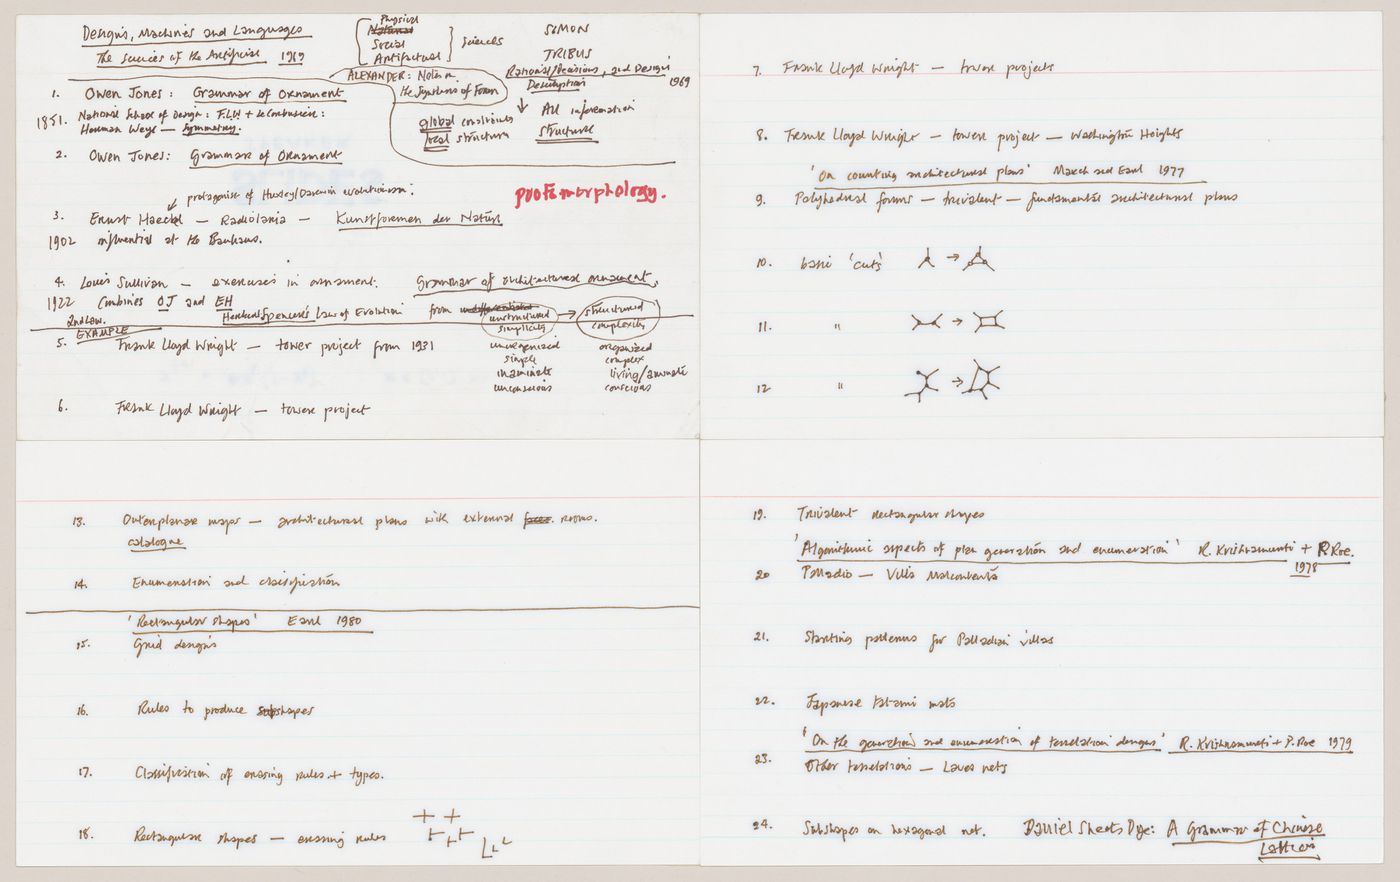 Designs, Machines and Languages
The Sciences of the Artificial 1969
Physical
Natural
Social
Artifactual
Sciences
SIMON
TRIBUS
Rational Decisions, and Design
Description 1969
ALEXANDER: Notes on
the Synthesis of Form
All information
global constraints
local structure
structure
1. Owen Jones: Grammar of Ornament
1851. National School of Design: F.LW + Le Corbusier:
Herman Weyl — Symmetry.
2. Owen Jones: Grammar of Ornament
protagonist of Huxley/Darwin evolutionism:
proto morphology.
3. Ernst Haeckel — Radiolaria — Kunstformen der Natur
1902 influential at the Bauhaus.
4. Louis Sullivan — exercises in ornament. Grammar of architectural ornament,
1922 Combines OJ and EH
Herbert Spencer's Law of Evolution from undifferentiated
unstructured → structured
simplicity complexity
2nd Law.
EXAMPLE
5. Frank Lloyd Wright — tower project from 1931
unorganized organized
simple complex
inanimate living/animate
unconscious conscious
6. Frank Lloyd Wright — tower project
7. Frank Lloyd Wright — tower projects
8. Frank Lloyd Wright — tower project — Washington Heights
'On counting architectural plans' March and Earl 1977
9. Polyhedral forms — trivalent — fundamental architectural plans
10. basic 'cuts' →
11. " →
12 " →
13. Outerplanar maps — architectural plans with external faces. rooms.
catalogue
14. Enumeration and classification
'Rectangular shapes' Earl 1980
15. Grid designs
16. Rules to produce subshapes
17. Classification of erasing rules + types.
18. Rectangular shapes — erasing rules
19. Trivalent rectangular shapes
'Algorithmic aspects of plan generation and enumeration' R. Krishnamurti + P. Roe.
1978
20 Palladio — Villa Malcontenta
21. Starting patterns for Palladian villas
22. Japanese tatami mats
'On the generation and enumeration of tessellation designs' R. Krishnamurti + P. Roe 1979
23. Other tessellations — Laves nets
24. Subshapes on hexagonal net. Daniel Sheets Dye: A Grammar of Chinese
Lattices